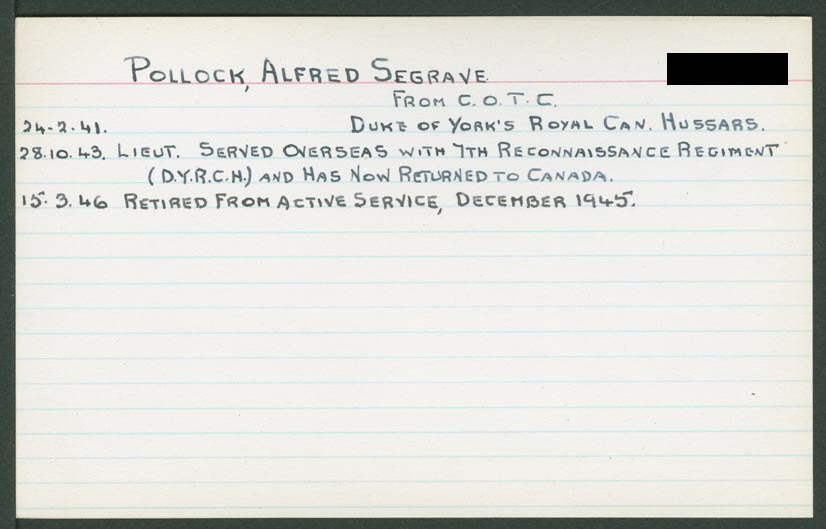 POLLOCK, ALFRED SEGRAVE
FROM C.O.T.C.
24-2-41. DUKE OF YORK'S ROYAL CAN. HUSSARS.
28.10.43. LIEUT. SERVED OVERSEAS WITH 7TH RECONNAISSANCE REGIMENT
(D.Y.R.C.H.) AND HAS NOW RETURNED TO CANADA.
15.3.46 RETIRED FROM ACTIVE SERVICE, DECEMBER 1945.